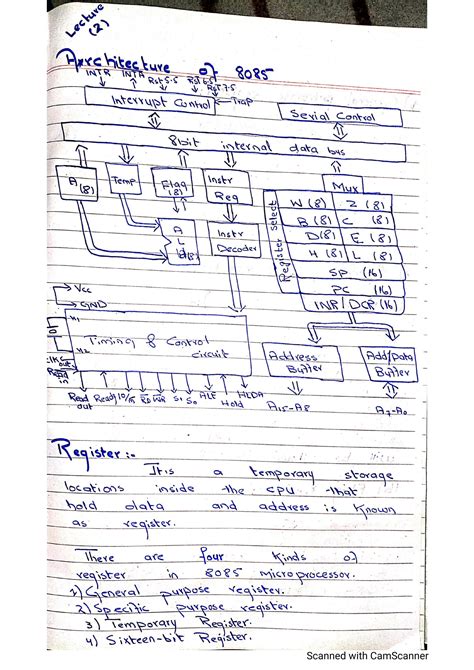 Lecture
(2)
Architecture of 8085
INTR INTA Rst 5.5 Rst 6.5 Rst 7.5
Interrupt Control
Trap
Serial Control
8bit internal data bus
A (8)
Temp
Flag (8)
Instr Reg
Mux
A L U (8)
Instr Decoder
Register Select
W (8) Z (8)
B (8) C (8)
D(8) E (8)
H (8) L (8)
SP (16)
PC (16)
INR/DCR (16)
Vcc
GND
X1
X2
Timing & Control circuit
Address Buffer
Add/Data Buffer
CLK out
Read in
Read out
Ready IO/M RD WR S1 S0 ALE Hold HLDA
A15-A8
A7-A0
Register :-
It is a temporary storage
locations inside the CPU that
hold data and address is known
as register.
There are four kinds of
register in 8085 microprocessor.
1) General purpose register.
2) Specific purpose register.
3) Temporary Register.
4) Sixteen-bit Register.
Scanned with CamScanner